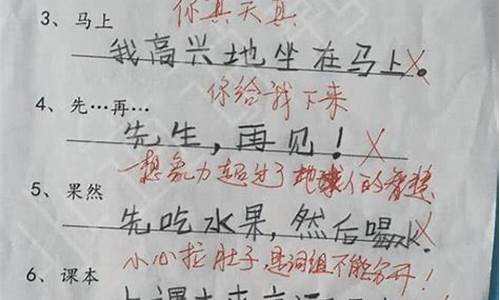 你真天真
3、马上
我高兴地坐在马上。
你给我下来
4、先…再…
先生，再见！
想象力超过了地球人的智慧
5、果然
先吃水果，然后喝水。
小心拉肚子，是词组不能分开！
6、课本
上课本来应